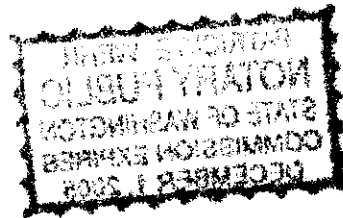 NOTARY PUBLIC
STATE OF WASHINGTON
COMMISSION EXPIRES
DECEMBER 1,